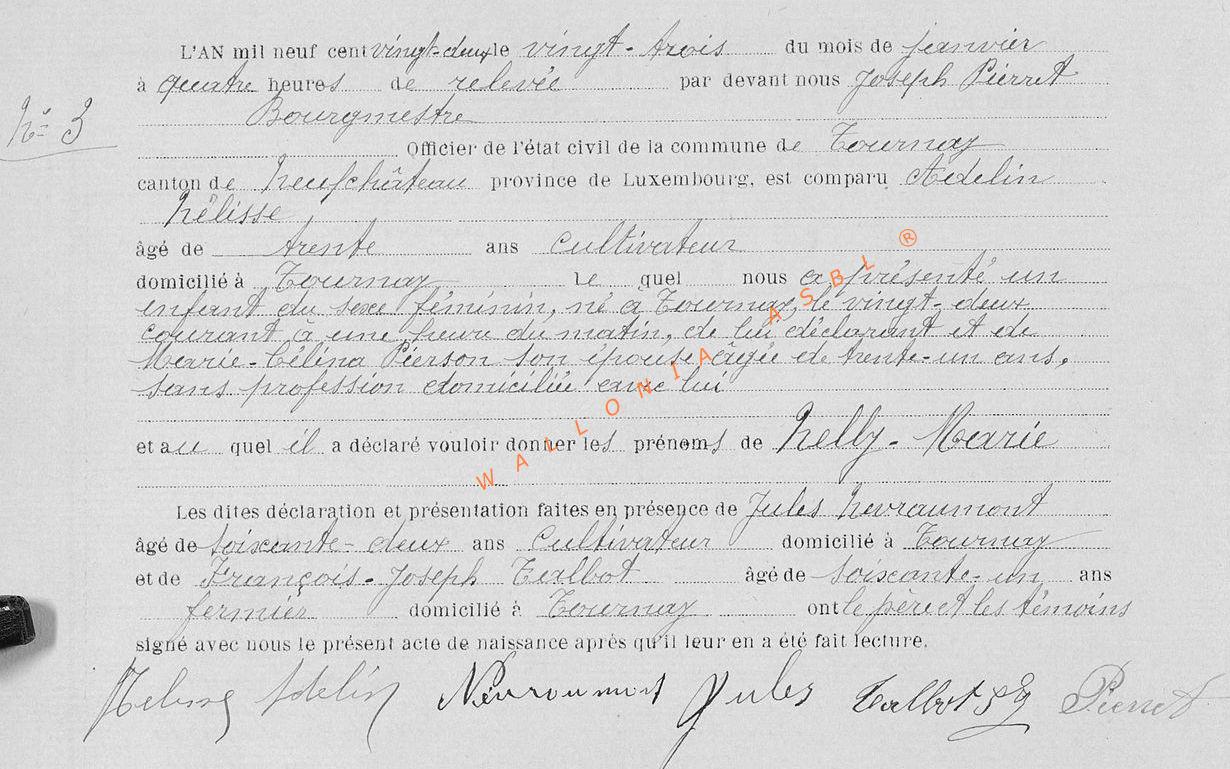 L'AN mil neuf cent vingt-deux le vingt-trois du mois de janvier
à quatre heures de relevée par devant nous Joseph Pierret
Bourgmestre
N° 3
Officier de l'état civil de la commune de Tournay
canton de Neufchâteau province de Luxembourg, est comparu Adelin
Nélisse,
âgé de trente ans cultivateur
domicilié à Tournay le quel nous a présenté un
enfant du sexe féminin, né à Tournay, le vingt-deux
courant à une heure du matin, de lui déclarant et de
Marie-Célina Pierson son épouse âgée de trente-un ans,
sans profession domiciliée avec lui
et au quel il a déclaré vouloir donner les prénoms de Nelly-Marie
Les dites déclaration et présentation faites en présence de Jules Nevraumont
âgé de soixante-deux ans Cultivateur domicilié à Tournay
et de François-Joseph Talbot âgé de soixante-un ans
fermier domicilié à Tournay ont le père et les témoins
signé avec nous le présent acte de naissance après qu'il leur en a été fait lecture.
Adelin Nevraumont Jules Talbot Pierret
WALLONIA ASBL ®